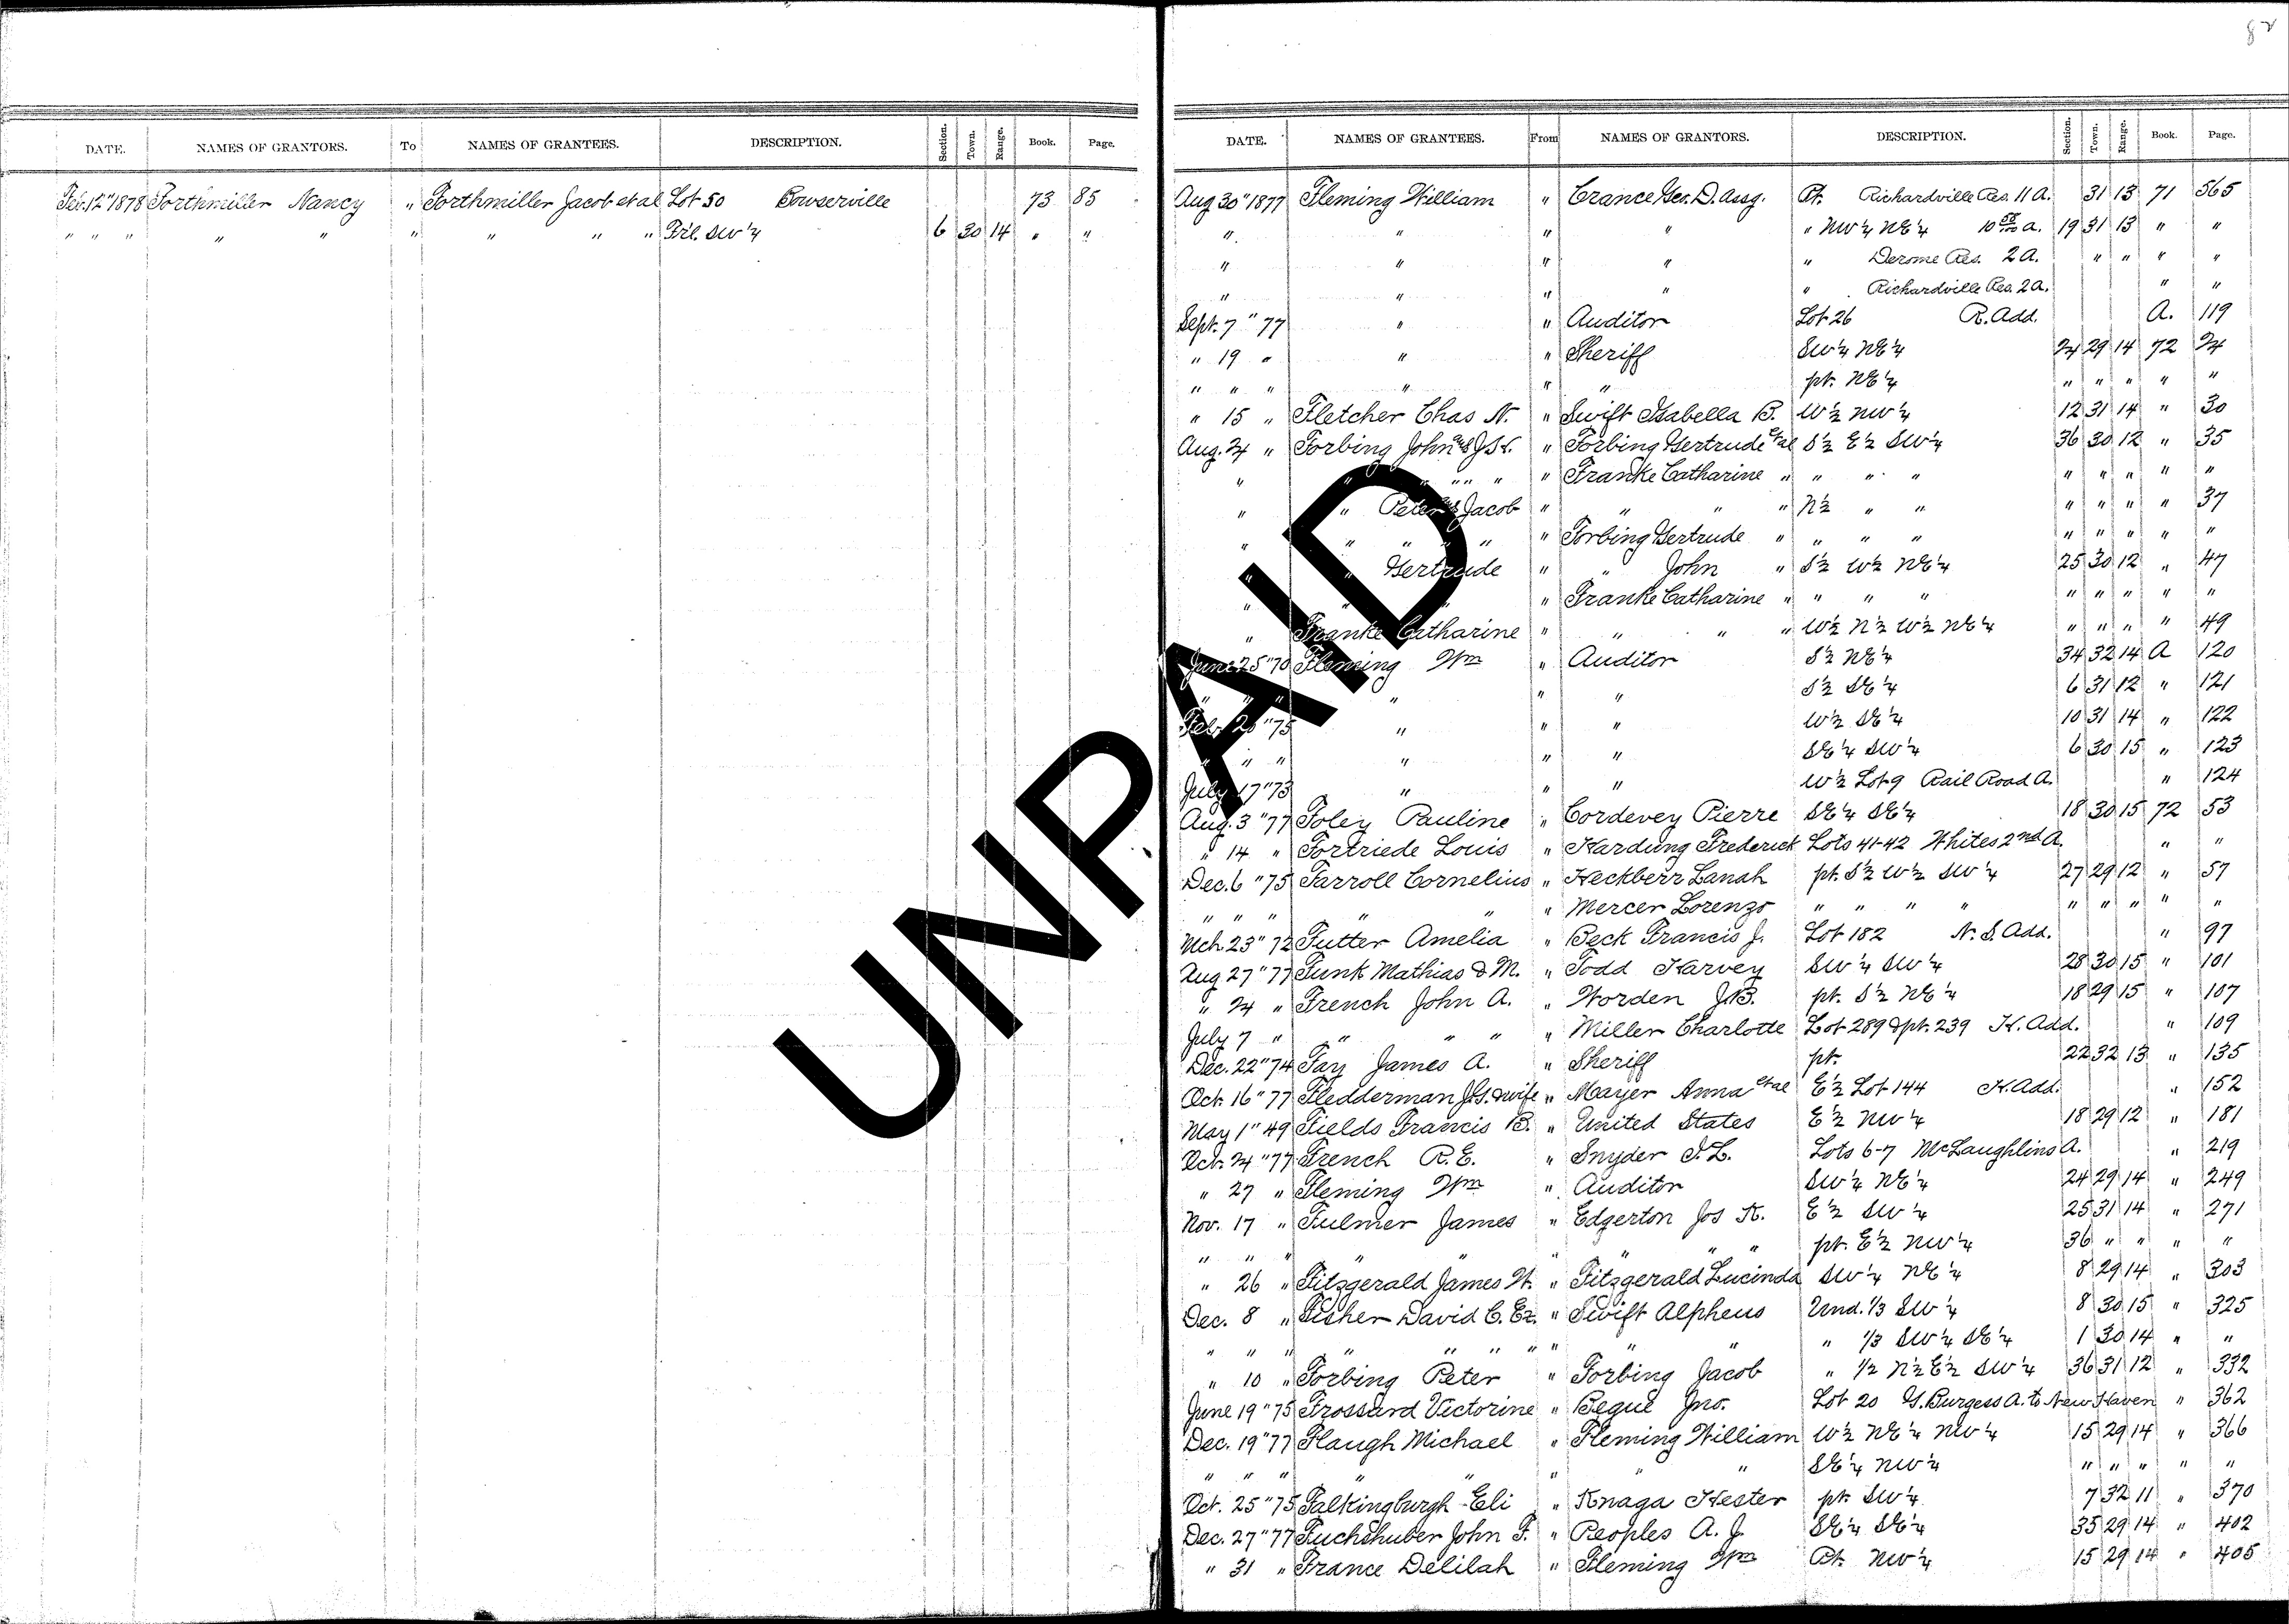 82
DATE. NAMES OF GRANTORS. To NAMES OF GRANTEES. DESCRIPTION. Section. Town. Range. Book. Page.
Feb. 12" 1878 Forthmiller Nancy " Forthmiller Jacob et al Lot 50 Bowserville 73 85
" " " " " " " " " Frl. SW ¼ 6 30 14 " "
DATE. NAMES OF GRANTEES. From NAMES OF GRANTORS. DESCRIPTION. Section. Town. Range. Book. Page.
Aug 30" 1877 Fleming William " Crance Geo. D. Assg. Pt. Richardville Res. 11 A. 31 13 71 565
" " " " " NW ¼ NE ¼ 10 58/100 a. 19 31 13 " "
" " " " " Derome Res. 2 A. " " " "
" " " " " Richardville Res. 2 A. " "
Sept. 7 " 77 " " Auditor Lot 26 R. Add. A. 119
" 19 " " " Sheriff SW ¼ NE ¼ 24 29 14 72 24
" " " " " " pt. NE ¼ " " " " "
" 15 " Fletcher Chas N. " Swift Isabella B. W ½ NW ¼ 12 31 14 " 30
Aug. 24 " Forbing John & J. " Forbing Gertrude et al S ½ E ½ SW ¼ 36 30 12 " 35
" " " " " " Franke Catharine " " " " " " " " "
" " Peter & Jacob " " " " N ½ " " " " " " 37
" " " " " " Forbing Gertrude " " " " " " " " "
" " Gertrude " " John " S ½ W ½ NE ¼ 25 30 12 " 47
" " " " Franke Catharine " " " " " " " " "
" Franke Catharine " " " " W ½ N ½ W ½ NE ¼ " " " " 49
June 25 " 70 Fleming Wm " Auditor S ½ NE ¼ 34 32 14 A 120
" " " " " " S ½ SE ¼ 6 31 12 " 121
Feb. 20 " 75 " " " W ½ SE ¼ 10 31 14 " 122
" " " " " " SE ¼ SW ¼ 6 30 15 " 123
July 17 " 73 " " " W ½ Lot 9 Rail Road A. " 124
Aug. 3 " 77 Foley Pauline " Cordevey Pierre SE ¼ SE ¼ 18 30 15 72 53
" 14 " Fortriede Louis " Hardung Frederick Lots 41-42 Whites 2nd A. " "
Dec. 6 " 75 Farroll Cornelius " Heckberr Lanah pt. S ½ W ½ SW ¼ 27 29 12 " 57
" " " " " " Mercer Lorenzo " " " " " " " " "
Mch. 23 " 72 Futter Amelia " Beck Francis J. Lot 182 N. S. Add. " 97
Aug 27 " 77 Funk Mathias & M. " Todd Harvey SW ¼ SW ¼ 28 30 15 " 101
" 24 " French John A. " Worden J.B. pt. S ½ NE ¼ 18 29 15 " 107
July 7 " " " " " Miller Charlotte Lot 289 & pt. 239 H. Add. " 109
Dec. 22 " 74 Fay James A. " Sheriff pt. 22 32 13 " 135
Oct. 16 " 77 Fledderman J.G. & wife " Mayer Anna et al E ½ Lot 144 H. Add. " 152
May 1 " 49 Fields Francis B. " United States E ½ NW ¼ 18 29 12 " 181
Oct. 24 " 77 French R. E. " Snyder S. L. Lots 6-7 McLaughlins A. " 219
" 27 " Fleming Wm " Auditor SW ¼ NE ¼ 24 29 14 " 249
Nov. 17 " Fulmer James " Edgerton Jos K. E ½ SW ¼ 25 31 14 " 271
" " " " " " " " " pt. E ½ NW ¼ 36 " " " "
" 26 " Fitzgerald James W. " Fitzgerald Lucinda SW ¼ NE ¼ 8 29 14 " 303
Dec. 8 " Fisher David C. Ex. " Swift Alpheus Und. 1/3 SW ¼ 8 30 15 " 325
" " " " " " " " " " " 1/3 SW ¼ SE ¼ 1 30 14 " "
" 10 " Forbing Peter " Forbing Jacob " 1/2 N ½ E ½ SW ¼ 36 31 12 " 332
June 19 " 75 Frossard Victorine " Begue Jno. Lot 20 G. Burgess A. to New Haven " 362
Dec. 19 " 77 Flaugh Michael " Fleming William W ½ NE ¼ NW ¼ 15 29 14 " 366
" " " " " " " " SE ¼ NW ¼ " " " " "
Oct. 25 " 75 Falkingburgh Eli " Knaga Hester pt. SW ¼ 7 32 11 " 370
Dec. 27 " 77 Fuchshuber John F. " Peoples A. J. SE ¼ SE ¼ 35 29 14 " 402
" 31 " France Delilah " Fleming Wm Pt. NW ¼ 15 29 14 " 405
UNPAID